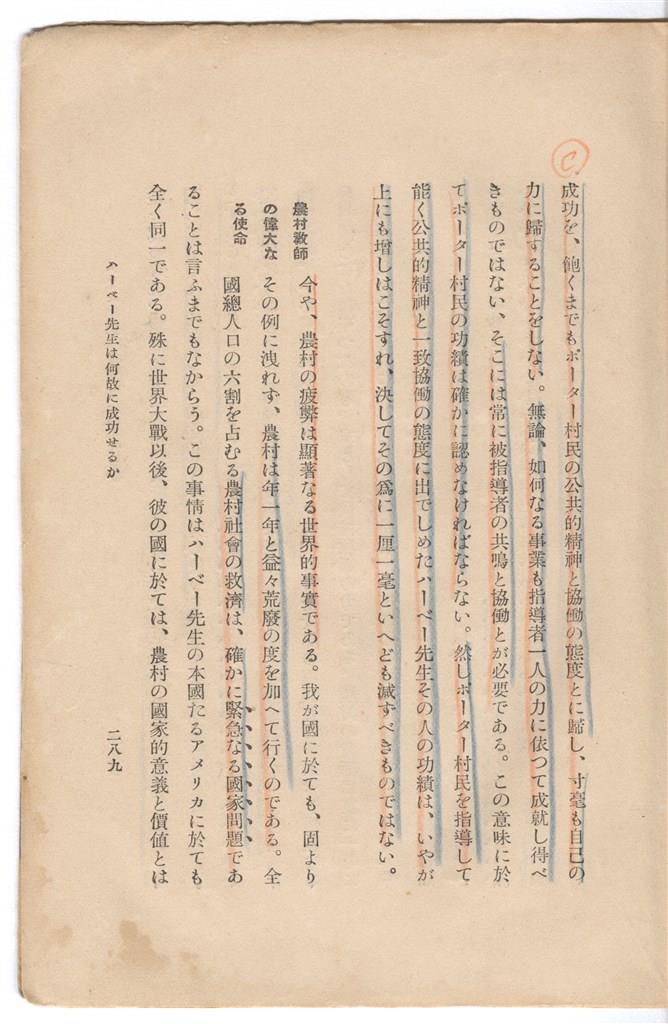 C.
成功を、飽くまでもポーター村民の公共的精神と協働の態度とに歸し、寸毫も自己の
力に歸することをしない。無論、如何なる事業も指導者一人の力に依つて成就し得べ
きものではない、そこには常に被指導者の共鳴と協働とが必要である。この意味に於
てポーター村民の功績は確かに認めなければならない。然しポーター村民を指導して
能く公共的精神と一致協働の態度に出でしめたハーベー先生その人の功績は、いやが
上にも增しはこそすれ、決してその爲に一厘一毫といへども減すべきものではない。
農村敎師
の偉大な
る使命
今や、農村の疲弊は顯著なる世界的事實である。我が國に於ても、固より
その例に洩れず、農村は年一年と益々荒廢の度を加へて行くのである。全
國總人口の六割を占むる農村社會の救濟は、確かに緊急なる國家問題であ
ることは言ふまでもなからう。この事情はハーベー先生の本國たるアメリカに於ても
全く同一である。殊に世界大戰以後、彼の國に於ては、農村の國家的意義と價値とは
ハーベー先生は何故に成功せるか
二八九